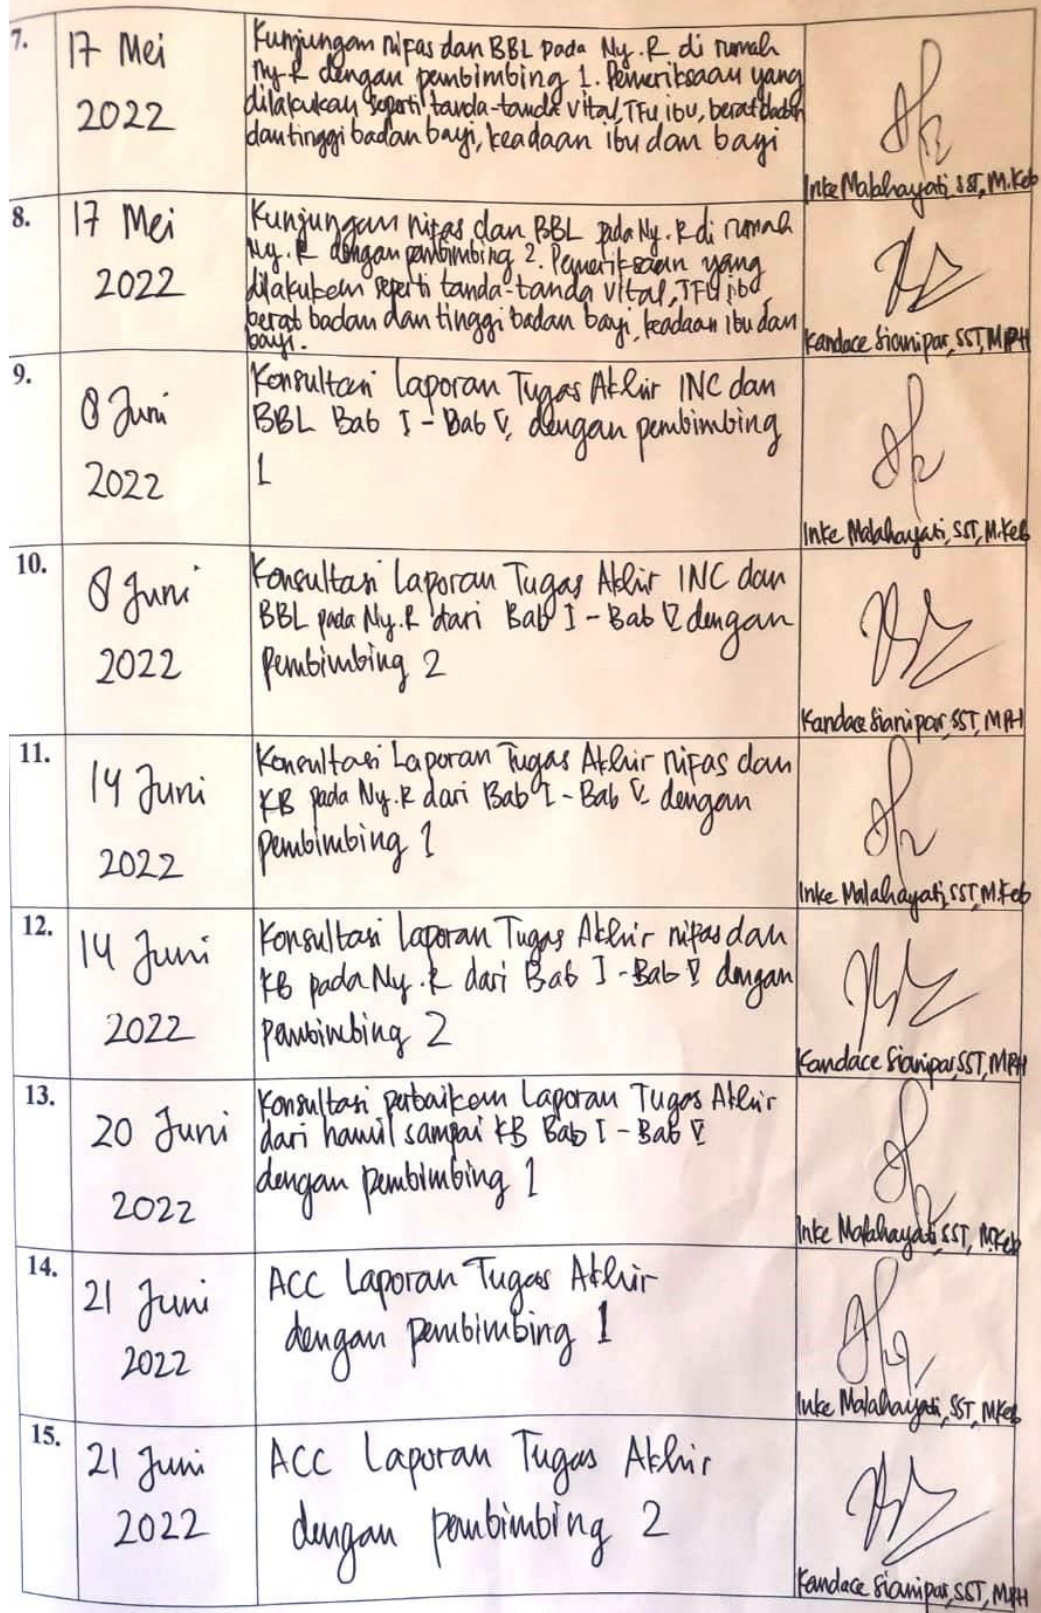 7.
17 Mei
2022
Kunjungan nifas dan BBL pada Ny.R di rumah
Ny.R dengan pembimbing 1. Pemeriksaan yang
dilakukan seperti tanda-tanda vital, TFU ibu, berat badan
dan tinggi badan bayi, keadaan ibu dan bayi
Inke Malahayati, SST, M.Keb
8.
17 Mei
2022
Kunjungan nifas dan BBL pada Ny.R di rumah
Ny.R dengan pembimbing 2. Pemeriksaan yang
dilakukan seperti tanda-tanda vital, TFU ibu
berat badan dan tinggi badan bayi, keadaan ibu dan
bayi.
Kandace Sianipar, SST, MPH
9.
8 Juni
2022
Konsultasi Laporan Tugas Akhir INC dan
BBL Bab I - Bab V, dengan pembimbing
1
Inke Malahayati, SST, M.Keb
10.
8 Juni
2022
Konsultasi Laporan Tugas Akhir INC dan
BBL pada Ny.R dari Bab I - Bab V dengan
Pembimbing 2
Kandace Sianipar, SST, MPH
11.
14 Juni
2022
Konsultasi Laporan Tugas Akhir nifas dan
KB pada Ny.R dari Bab I - Bab V dengan
Pembimbing 1
Inke Malahayati, SST, M.Keb
12.
14 Juni
2022
Konsultasi Laporan Tugas Akhir nifas dan
KB pada Ny.R dari Bab I - Bab V dengan
pembimbing 2
Kandace Sianipar, SST, MPH
13.
20 Juni
2022
Konsultasi perbaikan Laporan Tugas Akhir
dari hamil sampai KB Bab I - Bab V
dengan pembimbing 1
Inke Malahayati, SST, M.Keb
14.
21 Juni
2022
ACC Laporan Tugas Akhir
dengan pembimbing 1
Inke Malahayati, SST, MKeb
15.
21 Juni
2022
ACC Laporan Tugas Akhir
dengan pembimbing 2
Kandace Sianipar, SST, MPH